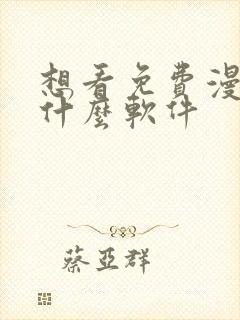 想看免費漫
什麼軟件
蔡亞群